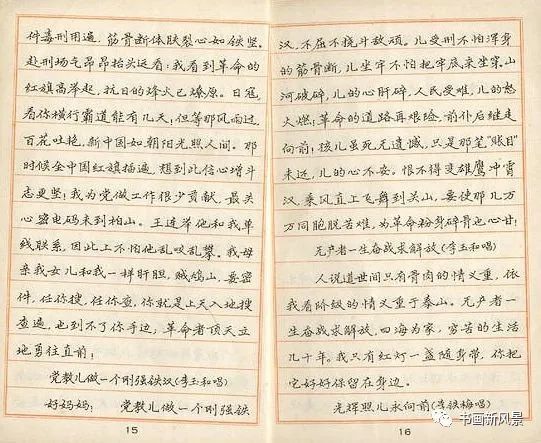 件毒刑用遍，筋骨断体肤裂心如铁坚。
赴刑场气昂昂抬头远看：我看到革命的
红旗高举起，抗日的烽火已燎原。日寇，
看你横行霸道能有几天！但等那风雨过，
百花吐艳，新中国如朝阳光照人间。那
时候全中国红旗插遍，想到此信心增斗
志更坚！我为党做工作很少贡献，最关
心密电码未到柏山。王连举他和我单
线联系，因此上不怕他乱咬乱攀。我母
亲我女儿和我一样肝胆，贼鸠山，要密
件，任你搜，任你查，你就是上天入地搜
查遍，也到不了你手边，革命者顶天立
地勇往直前！
党教儿做一个刚强铁汉(李玉和唱)
好妈妈： 党教儿做一个刚强铁
15
汉，不屈不挠斗敌顽。儿受刑不怕浑身
的筋骨断，儿坐牢不怕把牢底来坐穿。山
河破碎，儿的心肝碎，人民受难，儿的怒
火燃！革命的道路再艰险，前仆后继走
向前！孩儿虽死无遗憾，只是那笔"账目"
未还，儿的心不安。恨不得变雄鹰冲霄
汉，乘风直上飞舞到关山，要使那几万
万同胞脱苦难，为革命粉身碎骨也心甘！
无产者一生奋战求解放(李玉和唱)
人说道世间只有骨肉的情义重，依
我看阶级的情义重于泰山。无产者一
生奋战求解放，四海为家，穷苦的生活
几十年。我只有红灯一盏随身带，你把
它好好保留在身边。
光辉照儿永向前(李铁梅唱)
16
书画新风景